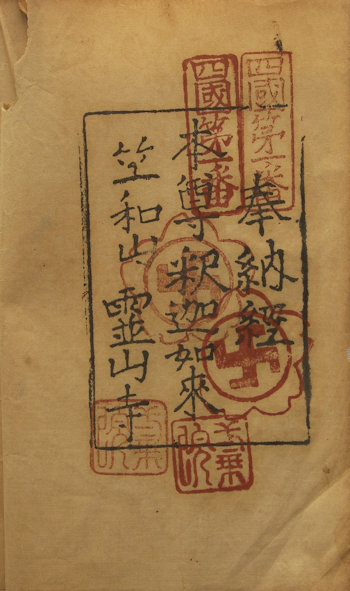 四國第一番
四國第一番
奉納經
本尊釈迦如來
竺和山
靈山寺